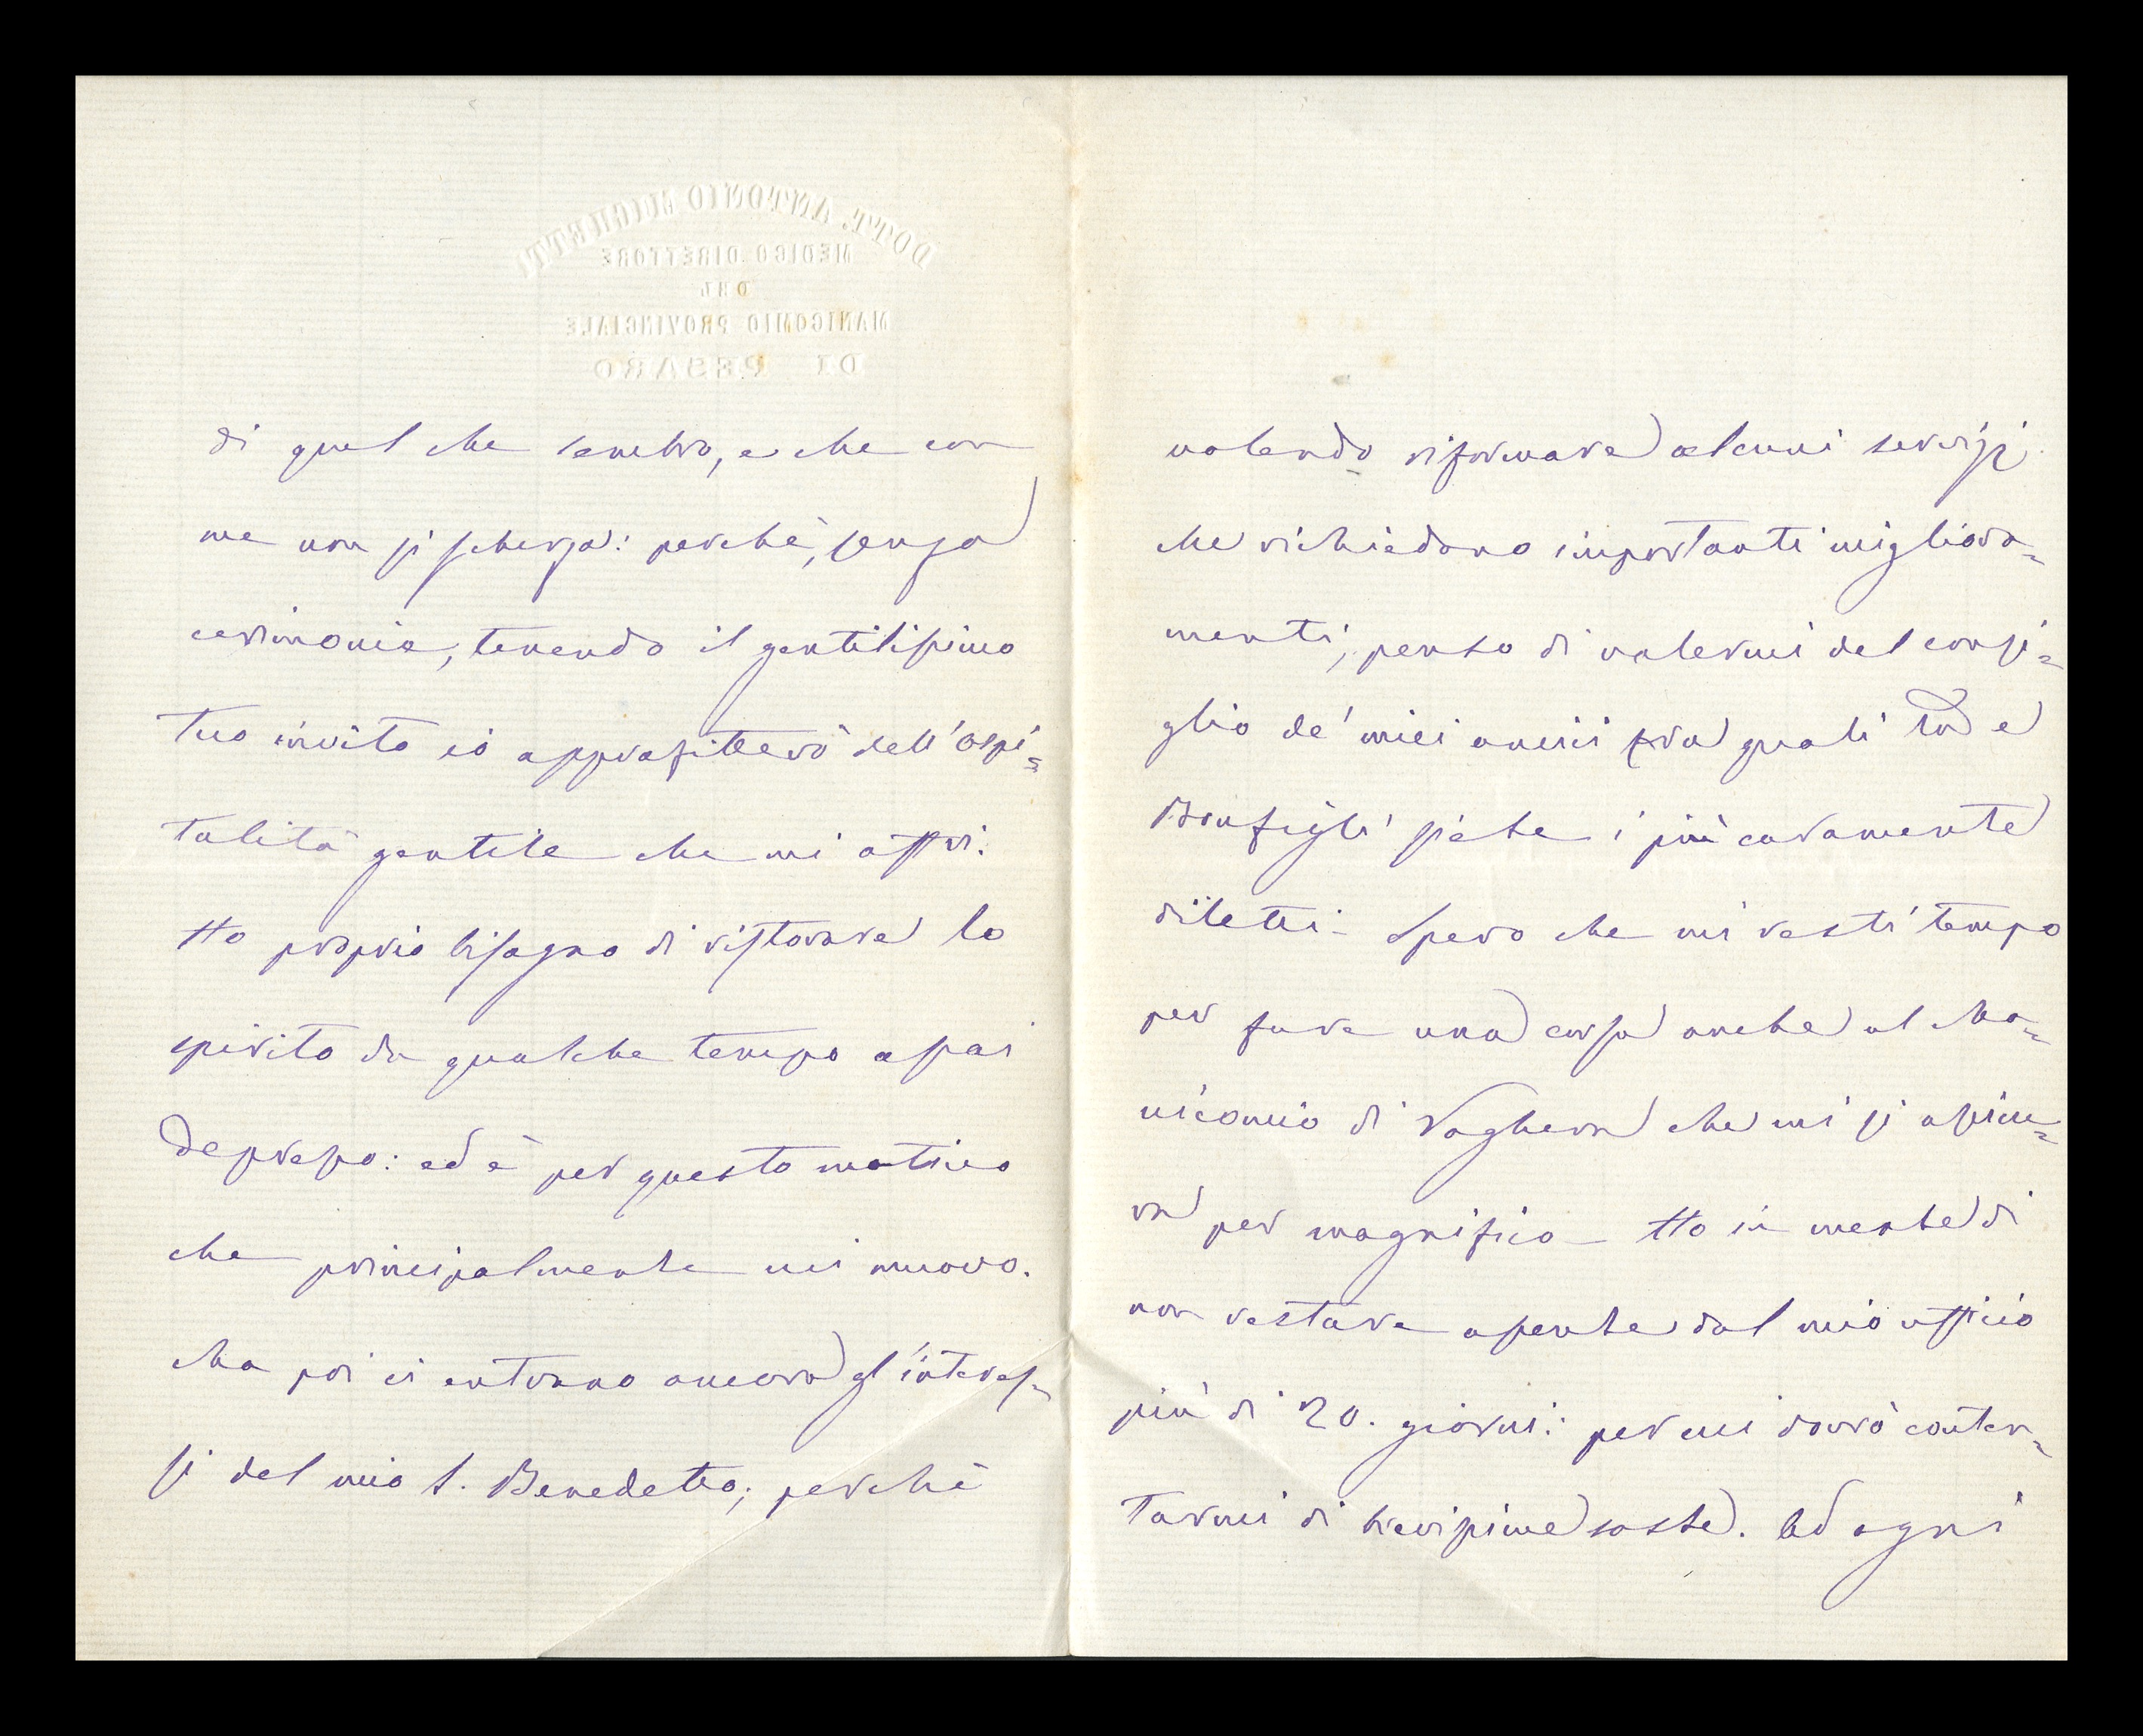 DOTT. ANTONIO MICHETTI
MEDICO DIRETTORE
DEL
MANICOMIO PROVINCIALE
DI PESARO
di quel che sembro, e che con
me non si scherza: perchè, senza
cerimonie, tenendo il gentilissimo
tuo invito io approfitterò dell'ospi=
talità gentile che mi offri.
Ho proprio bisogno di ristorare lo
spirito da qualche tempo assai
depresso: ed è per questo motivo
che principalmente mi muovo.
Ma poi ci entrano ancora gl'interes=
si del mio S. Benedetto; perchè
volendo riformare alcuni servizj
che richiedono importanti migliora=
menti, penso di valermi del consi=
glio de' miei amici fra quali tu e
Bonfigli siete i più caramente
diletti - Spero che mi resti tempo
per fare una corsa anche al Ma=
nicomio di Voghera che mi si assicu=
ra per magnifico - Ho in mente di
non restare assente dal mio ufficio
più di 20. giorni: per cui dovrò conten=
tarmi di brevissime soste. Ad ogni